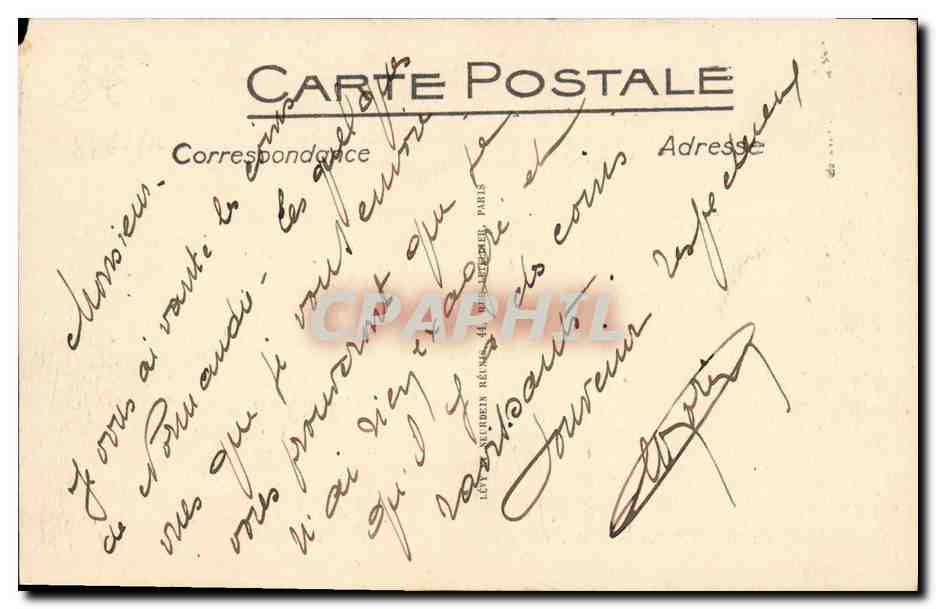 CARTE POSTALE
Correspondance
Adresse
LÉVY & NEURDEIN RÉUNIS, 44, RUE LETELLIER, PARIS
Monsieur.
Je vous ai vanté les coins
de Normandie. Les quelques
vues que je vous envoie
vous prouveront que je
n'ai rien exagéré et
qu'il y a des coins
ravissants.
Souvenir respectueux
CPAPHIL